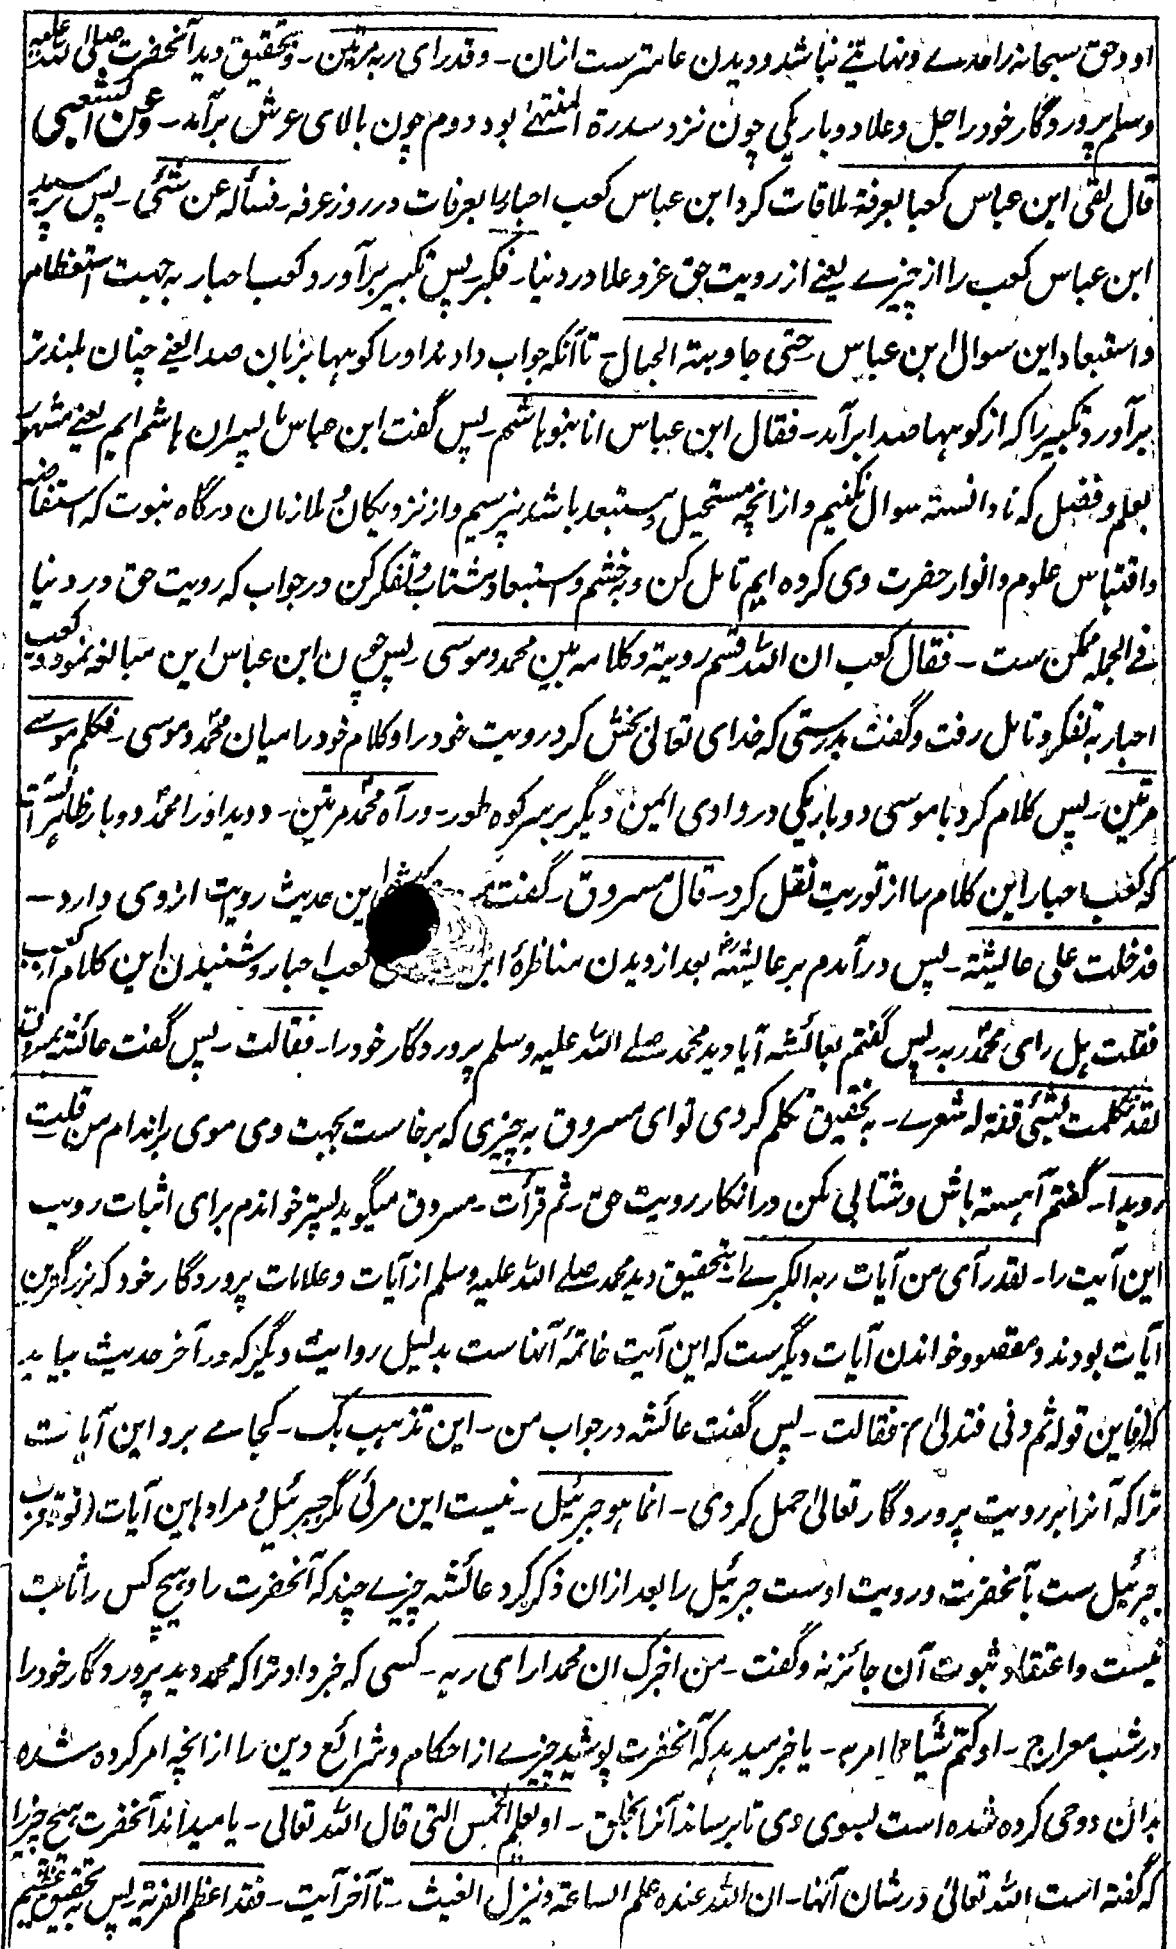 او و حق سبحانه را حدے و نهایتے نباشد و دیدن عام ترست ازان ـ وقد رای ربه مرتین ـ و بتحقیق دید آنحضرت صلی الله علیه
وسلم پروردگار خود را جل و علا دو بار یکی چون نزد سدرة المنتهے بود دوم چون بالای عرش برآمد ـ وعن الشعبی
قال لقی ابن عباس کعبا بعرفة ملاقات کرد ابن عباس کعب احبار را بعرفات در روز عرفه ـ فسأله عن شئی ـ پس پرسید
ابن عباس کعب را از چیزے یعنے از رویت حق عز و علا در دنیا ـ فکبر پس تکبیر برآورد کعب احبار به جهت استعظام
و استبعاد این سوال ابن عباس ـ حتی جاوبته الجبال ـ تا آنکه جواب دادند او را کوهها بزبان صدا یعنے چنان بلندتر
برآورد تکبیر را که از کوهها صدا برآمد ـ فقال ابن عباس انا بنو هاشم ـ پس گفت ابن عباس ما پسران هاشم ایم یعنے مشهور
بعلم و فضل که نادانسته سوال نکنیم و از انچه مستحیل و مستبعد باشد نپرسیم و از نزدیکان و ملازمان درگاه نبوت که استفاضه
و اقتباس علوم و انوار حضرت وی کرده ایم تامل کن و بخشم و استبعاد مشتاب و تفکر کن در جواب که رویت حق در دنیا
فی الجمله ممکن ست ـ فقال کعب ان الله قسم رویته و کلامه بین محمد و موسی ـ پس چون ابن عباس این مبالغه نمود کعب
احبار به تفکر و تامل رفت و گفت بدرستی که خدای تعالی بخش کرد رویت خود را و کلام خود را میان محمد و موسی ـ فکلم موسے
مرتین ـ پس کلام کرد با موسی دو بار یکی در وادی ایمن و دیگر بر سر کوه طور ـ ورآه محمد مرتین ـ و دید او را محمد دو بار ظاهر آنست
که کعب احبار این کلام را از توریت نقل کرد ـ قال مسروق ـ گفت این حدیث روایت از وی دارد ـ
فدخلت علی عایشة ـ پس درآمدم بر عایشه بعد از دیدن مناظرهٔ کعب احبار و شنیدن این کلام از کعب
فقلت هل رای محمد ربه ـ پس گفتم بعائشه آیا دید محمد صلے الله علیه وسلم پروردگار خود را ـ فقالت ـ پس گفت عائشه بمسروق
لقد تکلمت بشئی قف له شعرے ـ بتحقیق تکلم کردی تو ای مسروق به چیزی که برخاست بجهت وی موی بر اندام من قلت
رویدا ـ گفتم آهسته باش و شتابی مکن در انکار رویت حق ـ ثم قرأت ـ مسروق میگوید پستر خواندم برای اثبات رویت
این آیت را ـ لقد رآی من آیات ربه الکبرے ـ بتحقیق دید محمد صلے الله علیه وسلم از آیات و علامات پروردگار خود که بزرگترین
آیات بودند و مقصود خواندن آیات دیگرست که این آیت خاتمهٔ آنهاست بدلیل روایت دیگر که در آخر حدیث بیاید
که فاین قوله ثم دنی فتدلی ـ فقالت ـ پس گفت عائشه در جواب من ـ این تذهب بک ـ کجا مے برد این آیات
ترا که آنرا بر رویت پروردگار تعالی حمل کردی ـ انما هو جبرئیل ـ نیست این مرئی مگر جبرئیل و مراد باین آیات قرب
جبرئیل ست بآنحضرت و رویت اوست جبرئیل را بعد ازان ذکر کرد عائشه چیزے چند که آنحضرت را و هیچ کس را ثابت
نیست و اعتقاد ثبوت آن جائز نه و گفت ـ من اخبرک ان محمدا رای ربه ـ کسی که خبر داد ترا که محمد دید پروردگار خود را
در شب معراج ـ او کتم شیا مما امر به ـ یا خبر میدهد که آنحضرت پوشید چیزے از احکام و شرائع دین را از انچه امر کرده شده
بدان و وحی کرده شده است بسوی وی تا برساند آنرا بخلق ـ او یعلم الخمس التی قال الله تعالی ـ یا میداند آنحضرت پنج چیز را
که گفته است الله تعالی در شان آنها ـ ان الله عنده علم الساعة و ینزل الغیث ـ تا آخر آیت ـ فقد اعظم الفریة پس بتحقیق عظیم